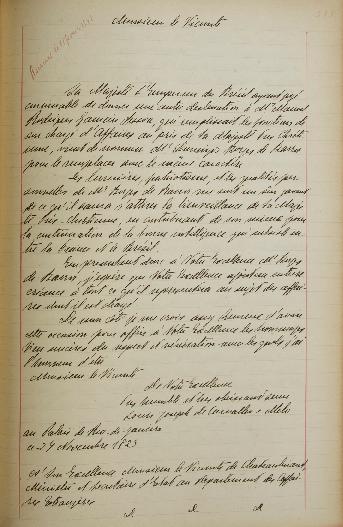 Monsieur le Vicomte
Sa Majesté l'Empereur du Brésil ayant jugé
convenable de donner une autre destination à Mr. Manuel
Rodrigues Gameiro Pessoa, qui remplissait les fonctions de
son chargé d'Affaires au près de Sa Majesté Très Chréti
enne, vient de nommer Mr. Domingos Borges de Barros
pour le remplacer avec le même caractère
Les lumières, patriotisme, et les qualités per
sonnelles de Mr. Borges de Barros me sont un sûr garant
de ce qu'il saura s'attirer la bienveillance de Sa Maje
sté Très-chrétienne, en contribuant de son mieux pour
la continuation de la bonne intelligence qui subsiste en
tre la France et le Brésil.
En présentant donc à Votre Excellence Mr. Borges
de Barros, j'espère que Votre Excellence ajoutera entière
créance à tout ce qu'il représentera au sujet des affai
res dont il est chargé
De mon côté je me crois assez heureux d'avoir
cette occasion pour offrir à Votre Excellence les hommages
très sincères du respect et vénération avec les quels j'ai
l'honneur d'être
Monsieur le Vicomte
De Votre Excellence
Très humble et très obéissant serviteur
Louis Joseph de Carvalho e Mello
au Palais de Rio-de-Janeiro
ce 24 Novembre 1823
À Son Excellence Monsieur le Vicomte de Chateaubriand,
Ministre et Secrétaire d'État au département des Affai
res Étrangères